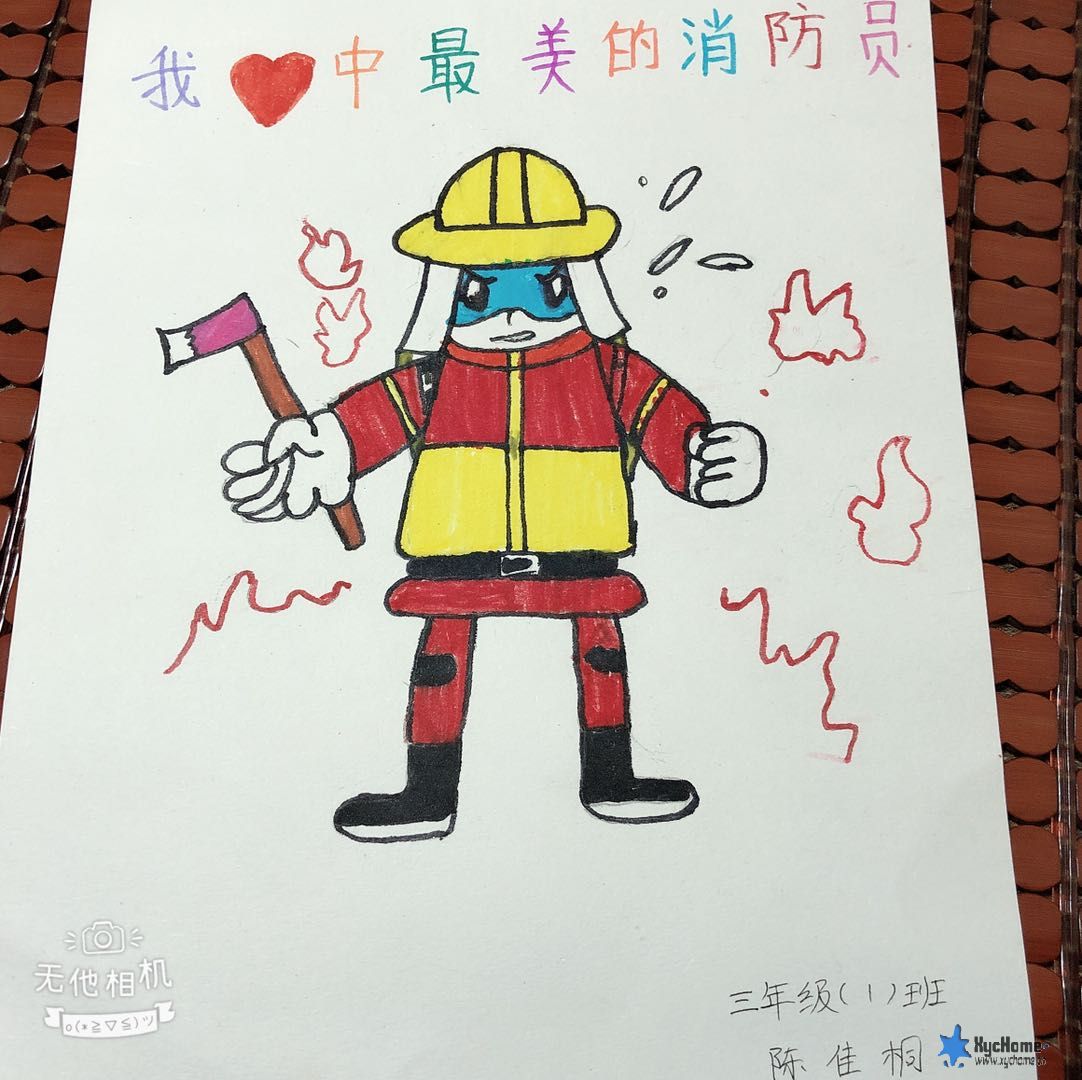 我❤中最美的消防员
无他相机
o(*≧▽≦)ツ
三年级(1)班
陈佳桐
XycHome
www.xychome.cn